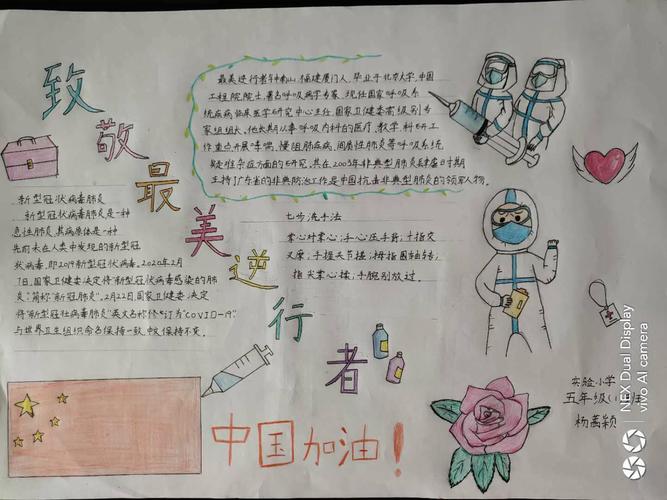 致敬最美逆行者
最美逆行者钟南山,福建厦门人,毕业于北京大学,中国
工程院院士,著名呼吸病学专家,现任国家呼吸系
统疾病临床医学研究中心主任,国家卫健委高级别专
家组组长,他长期从事呼吸内科的医疗、教学、科研工
作重点开展哮喘,慢阻肺疾病,间质性肺炎等呼吸系统
疑难杂症方面的研究,其在2003年非典型肺炎肆虐时期
主持广东省的非典防治工作是中国抗击非典型肺炎的领军人物。
新型冠状病毒肺炎
新型冠状病毒肺炎是一种
急性肺炎,其病原体是一种
先前未在人类中发现的新型冠
状病毒,即2019新型冠状病毒。2020年2月
7日,国家卫健委决定将"新型冠状病毒感染的肺
炎:简称"新冠肺炎"。2月22日,国家卫健委决定
将"新型冠状病毒肺炎"英文名称修订为"COVID-19"
与世界卫生组织命名保持一致,中文保持不变。
七步洗手法
掌心对掌心;手心压手背;十指交
叉摩;手握关节搓;拇指围轴转;
指尖掌心揉;手腕别放过。
中国加油!
实验小学
五年级
NEX Dual Display
vivo AI camera